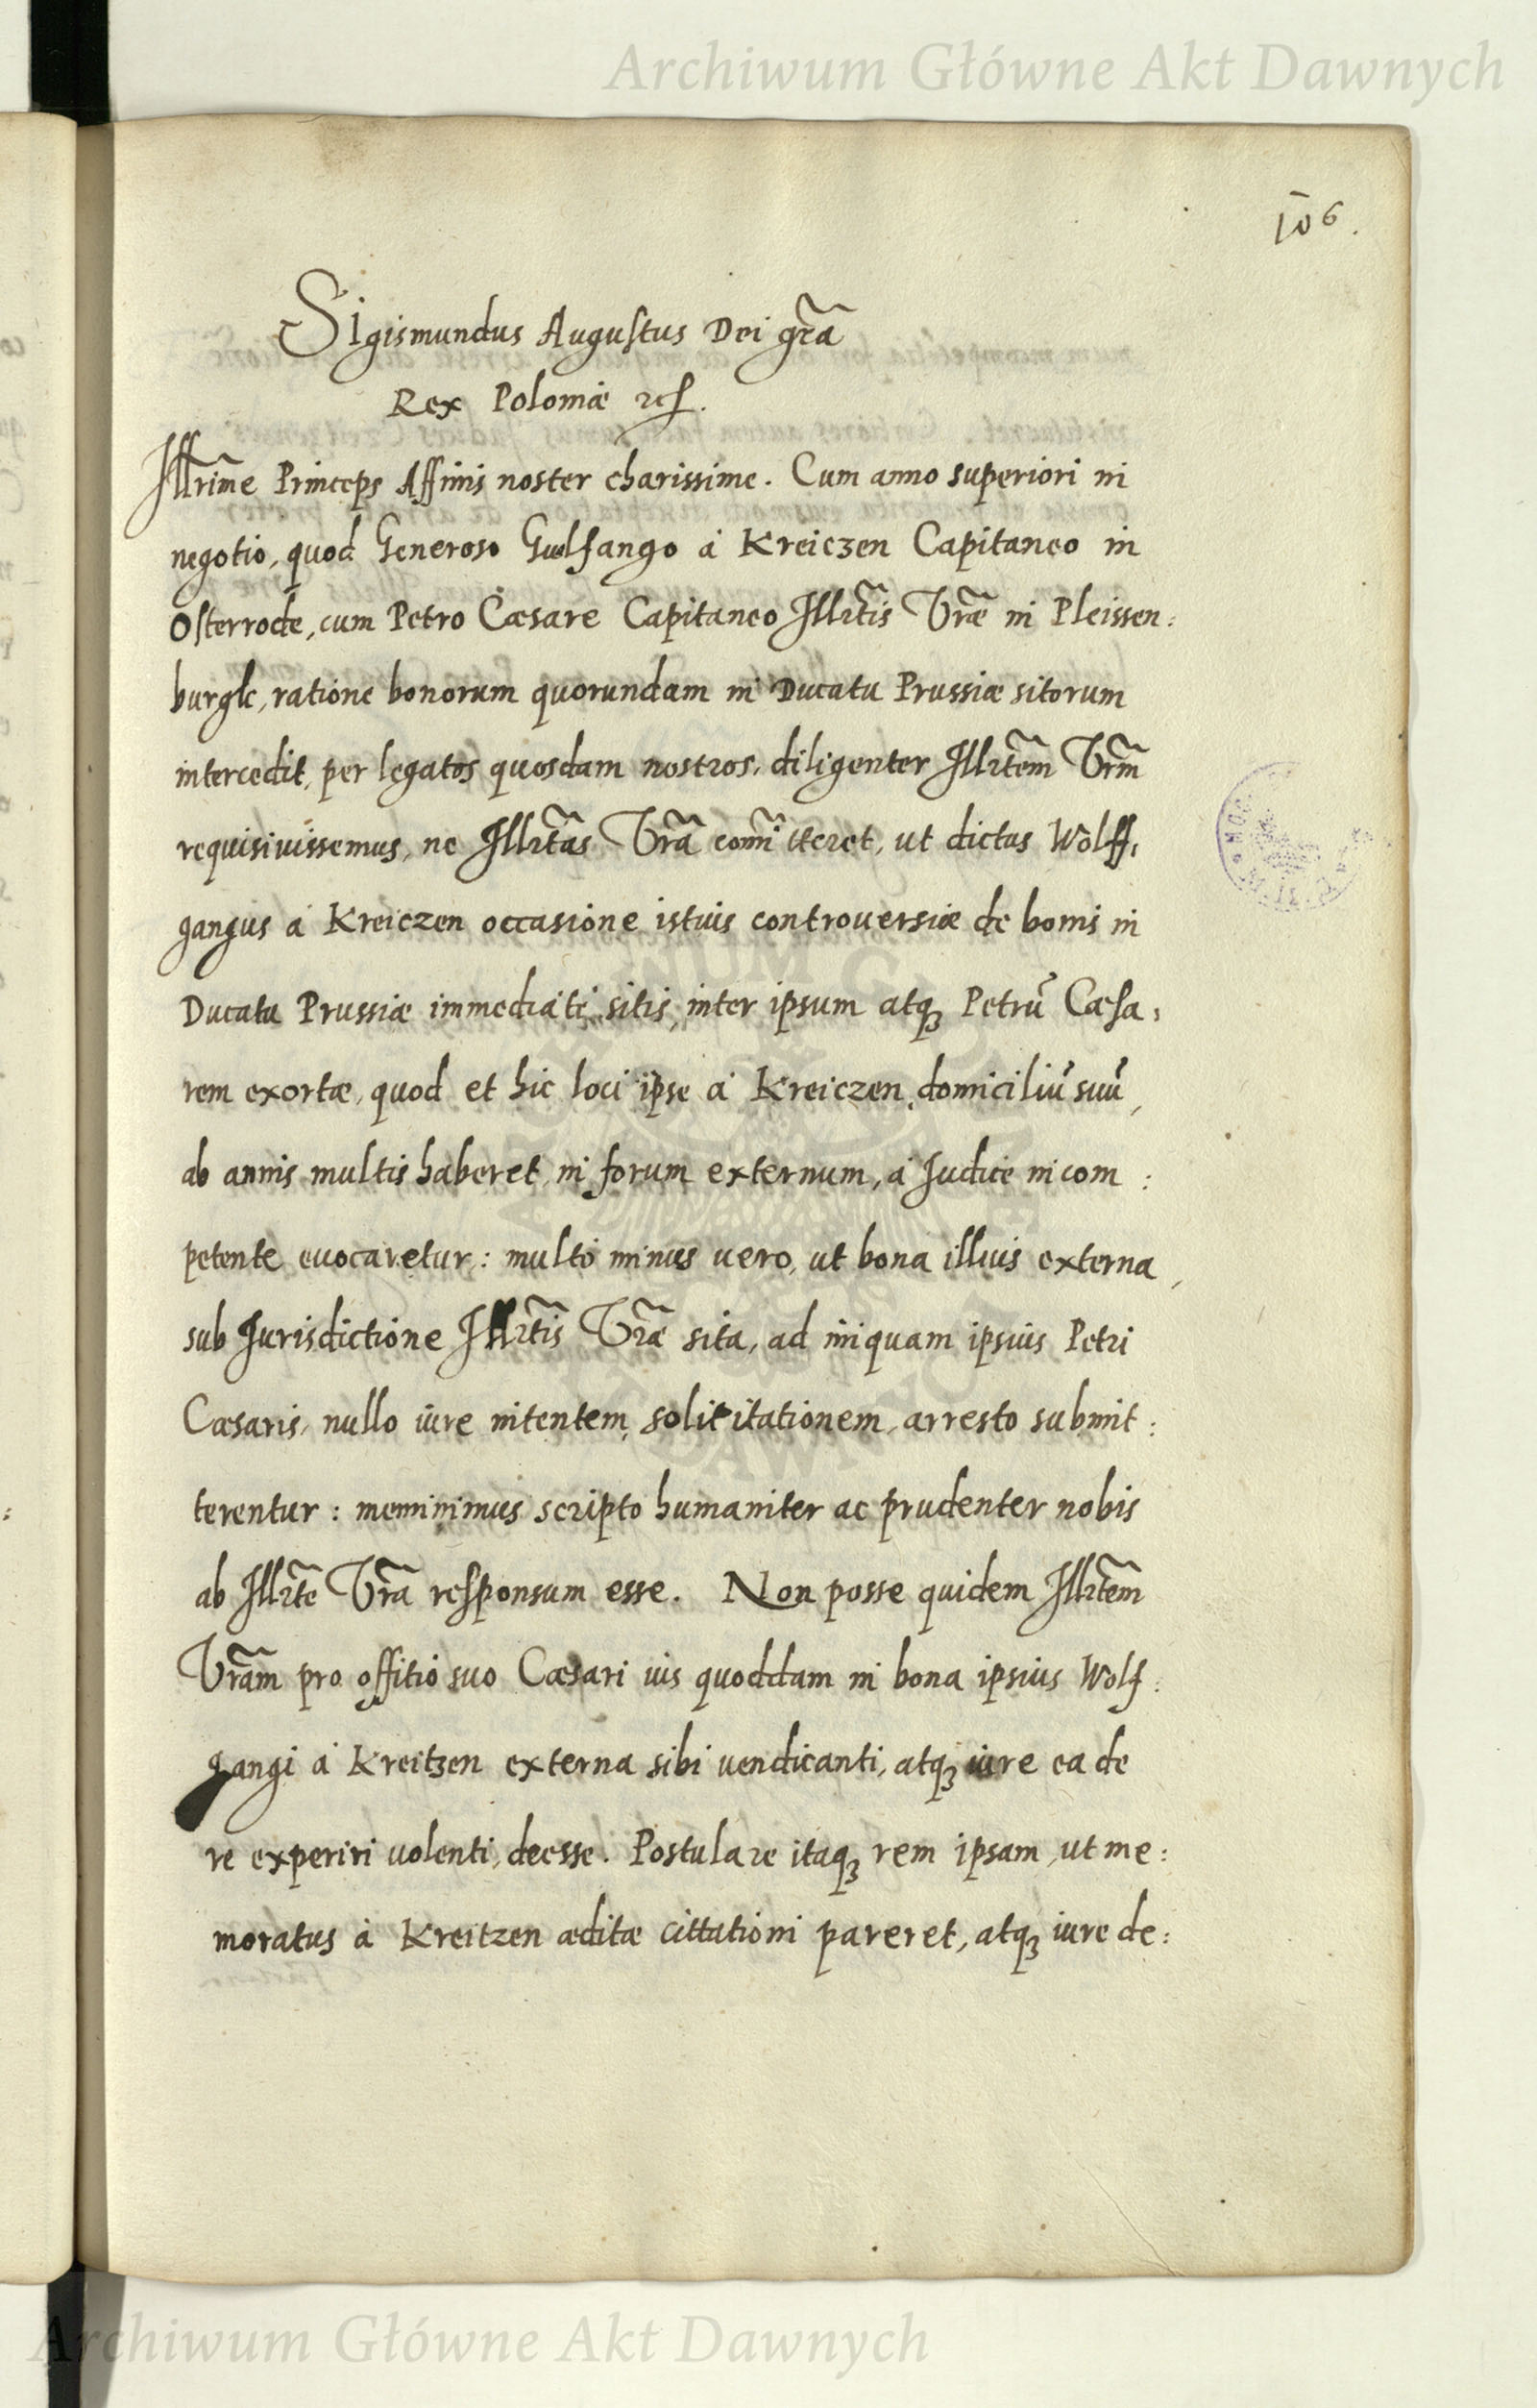 Archiwum Główne Akt Dawnych
106.
Sigismundus Augustus Dei gra͂
Rex Poloniæ
Illrim͂e Princeps Affinis noster charissime. Cum anno superiori in
negotio, quod Generoso Guolfango à Kreiczen Capitaneo in
Osterrode, cum Petro Cæsare Capitaneo Illrt͂is Vr͂æ in Pleissen:
burgk, ratione bonorum quorundam in Ducatu Prussiæ sitorum
intercedit, per legatos quosdam nostros, diligenter Illrt͂em Vr͂m
requisiuissemus, ne Illrt͂as Vr͂a com͂itteret, ut dictus Wolff,
gangus à Kreiczen occasione istius controuersiæ de bonis in
Ducatu Prussiæ immediatè sitis, inter ipsum atqꝫ Petrū Cæsa,
rem exortæ, quod et hic loci ipse à Kreiczen, domiciliū suū,
ab annis multis haberet, in forum externum, à Judice incom:
petente euocaretur: multò minus uero, ut bona illius externa,
sub Jurisdictione Illrt͂is Vr͂æ sita, ad iniquam ipsius Petri
Cæsaris, nullo iure nitentem, solicitationem, arresto submit:
terentur: meminimus scripto humaniter ac prudenter nobis
ab Illrt͂e Vr͂a responsum esse. Non posse quidem Illrt͂em
Vr͂am pro offitio suo Cæsari ius quoddam in bona ipsius Wolf:
gangi à Kreitzen externa sibi uendicanti, atqꝫ iure ea de
re experiri uolenti, deesse. Postulare itaqꝫ rem ipsam, ut me:
moratus à Kreitzen æditæ cittationi pareret, atqꝫ iure de:
Archiwum Główne Akt Dawnych